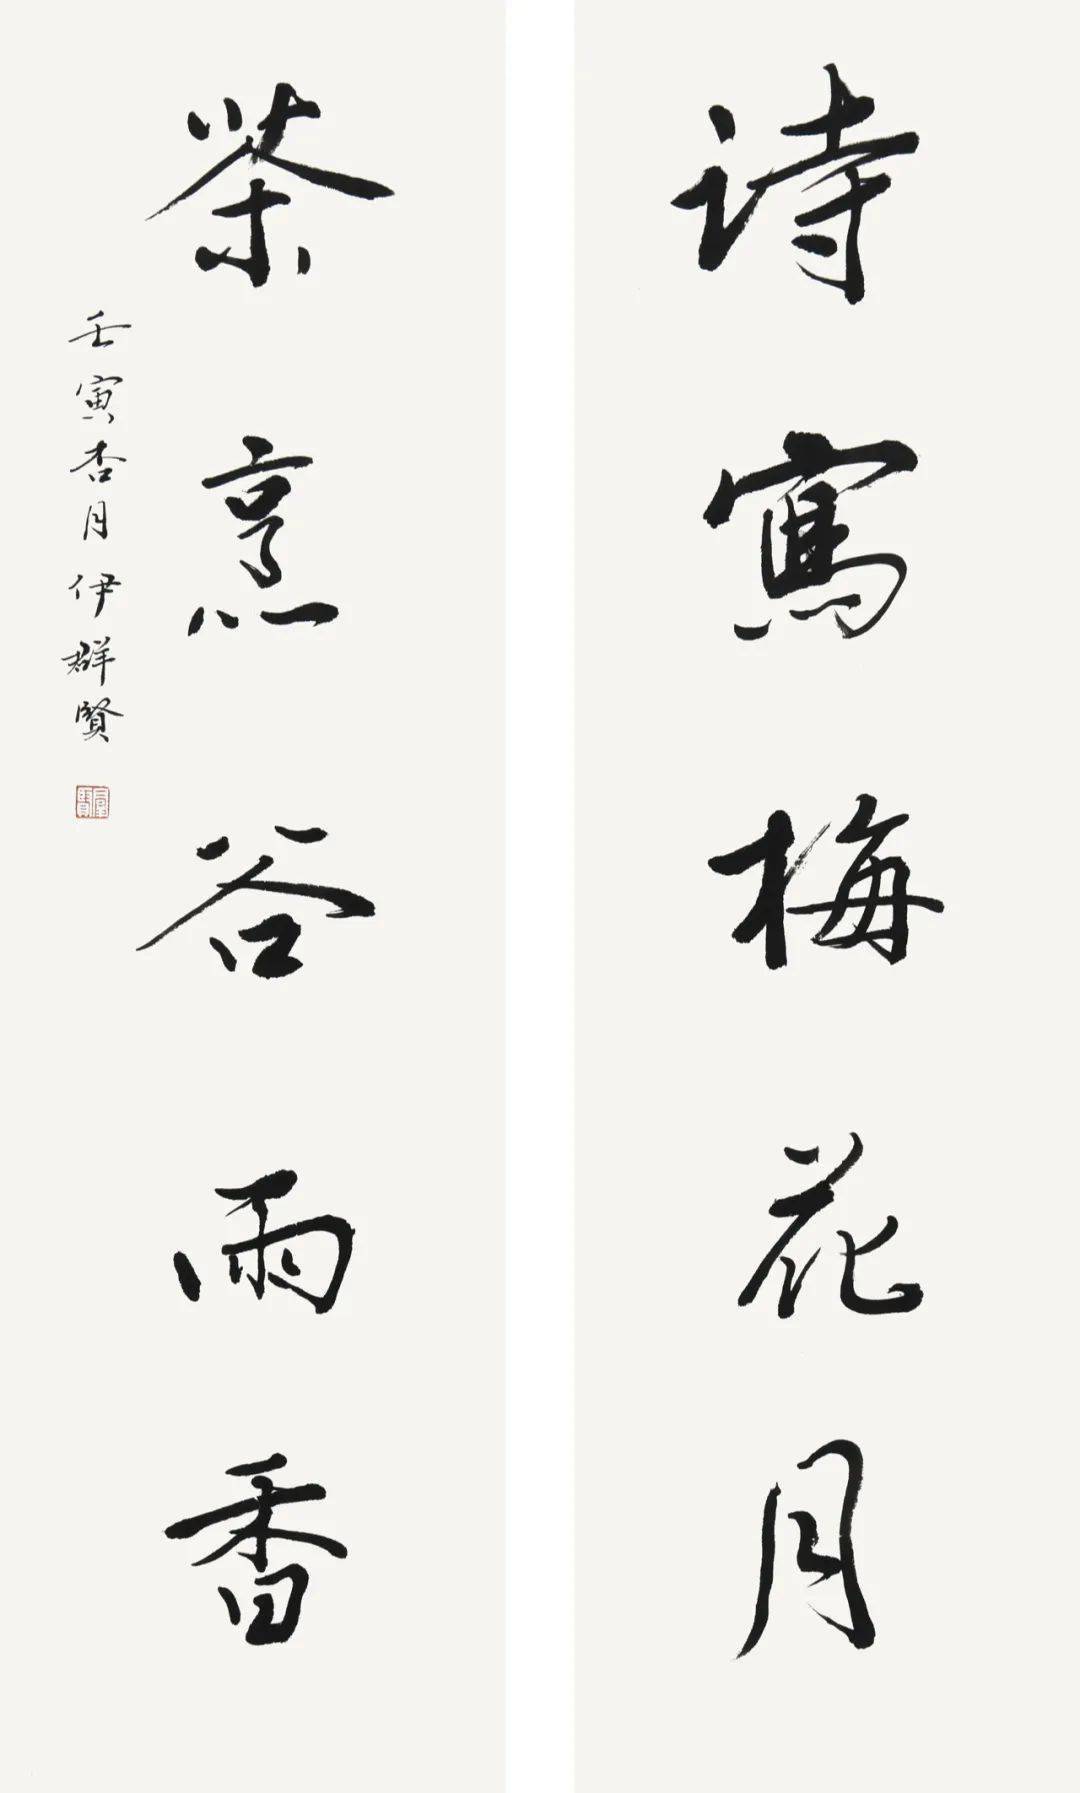 诗寫梅花月
茶烹谷雨香
壬寅杏月伊群賢